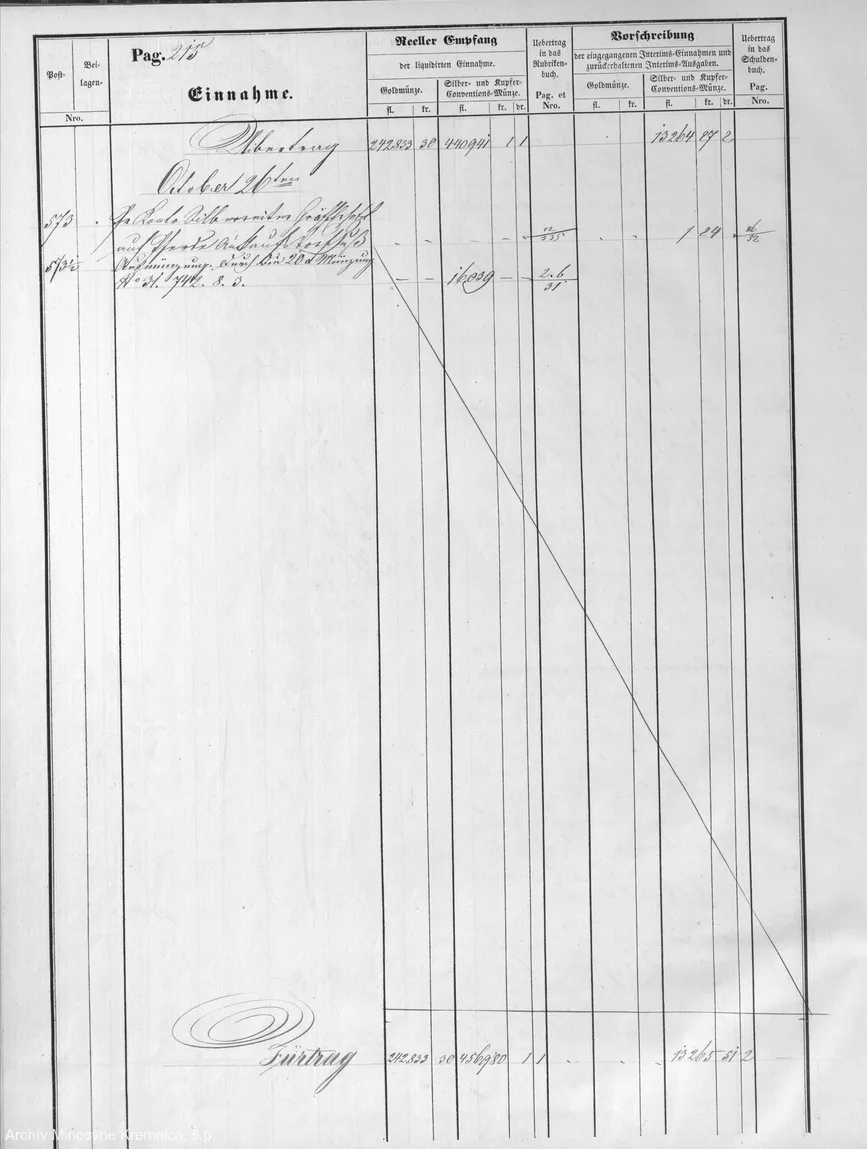 Pag. 215
Einnahme.
Post-
Bei-
lagen-
Nro.
Reeller Empfang
der liquidirten Einnahme.
Goldmünze.
Silber- und Kupfer-
Conventions-Münze.
fl. kr. fl. kr. dr.
Uebertrag
in das
Rubriken-
buch.
Pag. et
Nro.
Vorschreibung
der eingegangenen Interims-Einnahmen und
zurückerhaltenen Interims-Ausgaben.
Goldmünze.
Silber- und Kupfer-
Conventions-Münze.
fl. kr. fl. kr. dr.
Uebertrag
in das
Schulden-
buch.
Pag.
Nro.
Übertrag 242833 30 440941 1 1 13264 27 2
October 26ten
573
auf 1 24
573½ Ausmünzung. durch die 20 Münzung
No 31. 742. 8. 3. 16039 26/31
Fürtrag 242833 30 456980 1 1 13265 51 2
Archív Mincovne Kremnica, š.p.